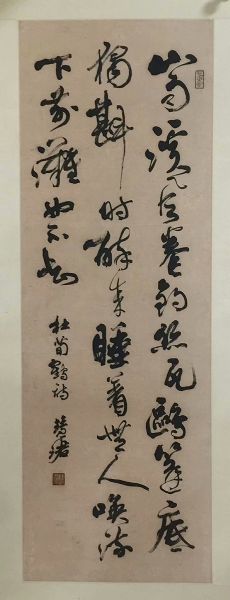 山雨溪風卷釣絲瓦甌篷底
獨斟時醉来睡着無人喚流
下前灘也不知
杜荀鶴詩